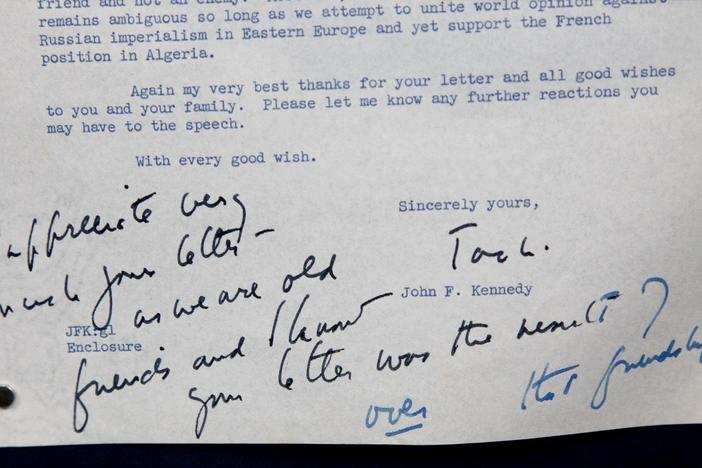 friend and not an enemy.
remains ambiguous so long as we attempt to unite world opinion against
Russian imperialism in Eastern Europe and yet support the French
position in Algeria.
Again my very best thanks for your letter and all good wishes
to you and your family. Please let me know any further reactions you
may have to the speech.
With every good wish.
Sincerely yours,
Jack.
John F. Kennedy
JFK:gl
Enclosure
appreciate very
much your letter -
as we are old
friends and I know
your letter was the result of
that friendship
over